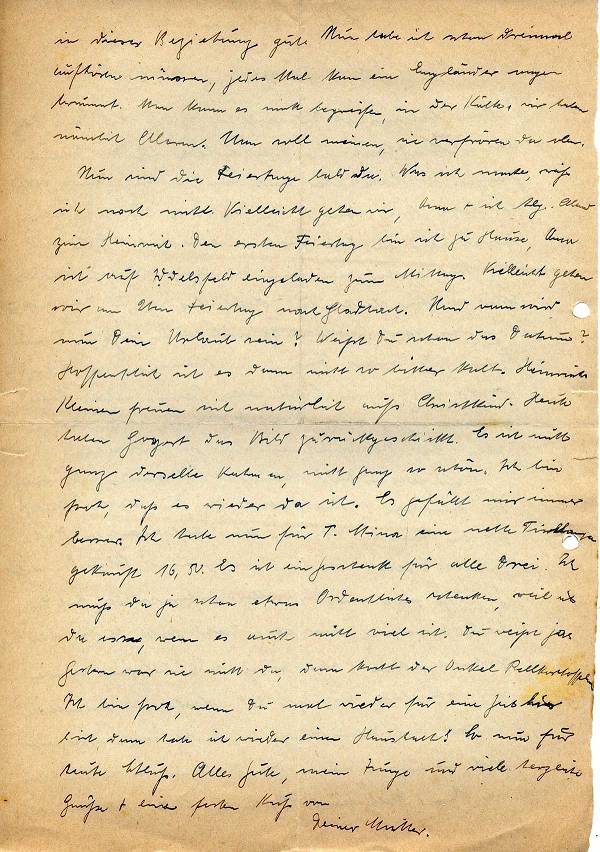 in dieser Beziehung gute Nun habe ich schon dreimal
aufhören müssen, jedes Mal kam ein Engländer angebrummt
Man kann es nicht begreifen, in der Kälte, wir haben
nämlich Alarm. Man soll meinen, sie verfrören da oben.
Nun sind die Feiertage bald da. Was ich mache, weiß
ich noch nicht. Vielleicht gehen wir, + ich Abend
zum Heinrich. Den ersten Feiertag bin ich zu Hause,
ist auf eingeladen zum Mittag. Vielleicht gehen
wir am 2ten Feiertag nach Gladbach. Und wann wird
nun Dein Urlaub sein? Weißt Du schon das Datum?
Hoffentlich ist es dann nicht so bitter kalt. Heinrichs
Kleinen freuen sich natürlich aufs Christkind. Heute
haben das Bild zurückgeschickt. Es ist nicht
ganz derselbe Rahmen, nicht ganz so schön. Ich bin
froh, daß es wieder da ist. Es gefällt mir immer
besser. Ich habe nun für T. Mina eine nette
gekauft 16,50. Es ist ein Geschenk für alle Drei. Ich
muß da ja schon etwas Ordentliches schenken, weil ich
da esse, wenn es auch nicht viel ist. Du weißt ja
Gestern war sie nicht da, dann kocht der Onkel Pellkartoffeln
Ich bin froh, wenn Du mal wieder für eine Zeit hier
bist, dann habe ich wieder einen Haushalt! So nun für
heute Schluß. Alles Gute, mein Junge und viele herzliche
Grüße + einen festen Kuß von
Deiner Mutter.